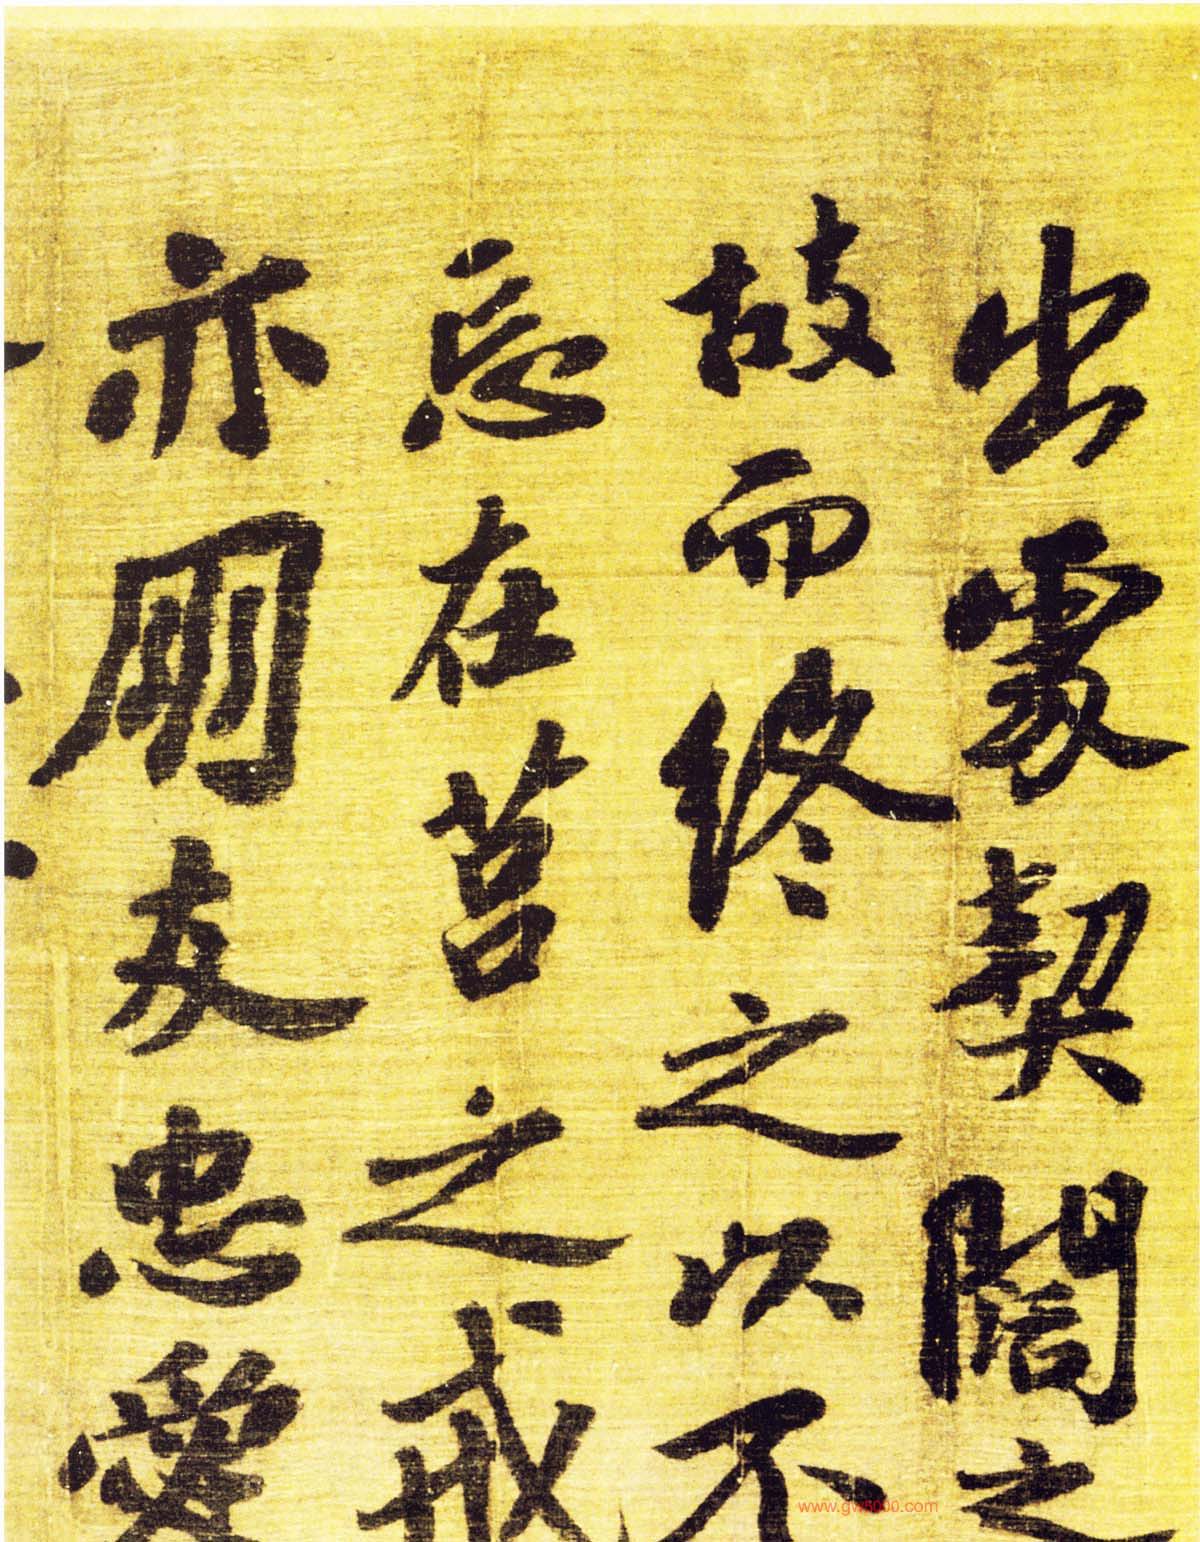 出處契闊之
故而終之以不
忘在莒之戒
亦朋友忠愛
www.gw8000.com